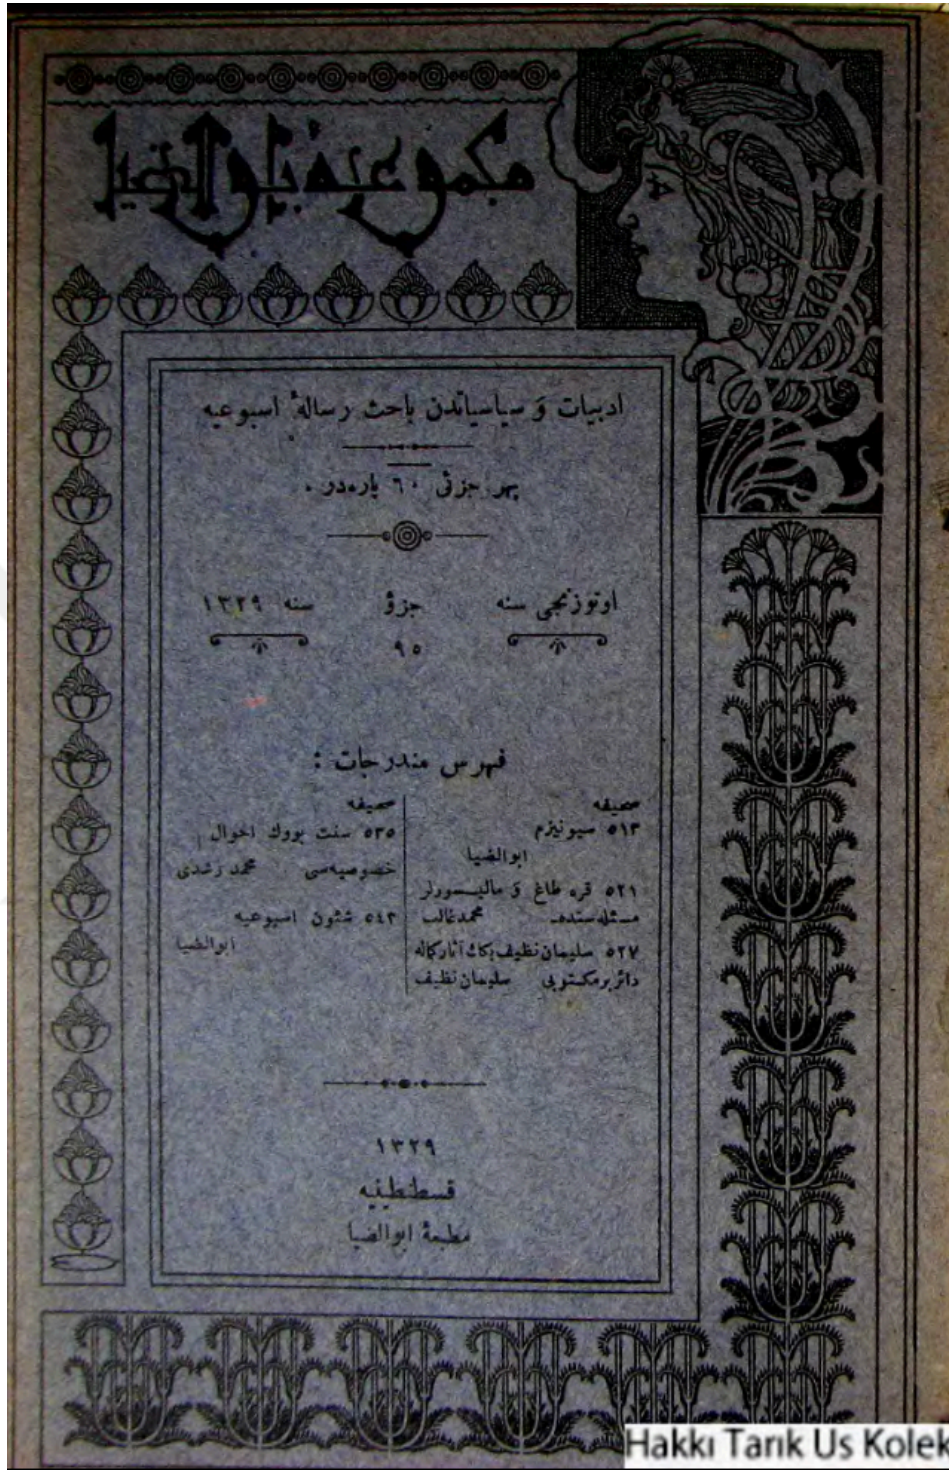 مجموعهٔ ابوالضیا
ادبیات و سیاسیاتدن باحث رسالهٔ اسبوعیه
بهر جزئی ٦٠ پاره‌در .
اوتوزنجی سنه
جزؤ
٩٥
سنه ١٣٢٩
فهرس مندرجات :
صحیفه
٥١٣ سیونیزم
ابوالضیا
٥٢١ قره طاغ و مالیسورلر
مسئله‌سنده محمد غالب
٥٢٧ سلیمان نظیف بكك آثار كماله
دائر بر مكتوبی سلیمان نظیف
صحیفه
٥٣٥ سنت بووك احوال
خصوصیه‌سی محمد رشدی
٥٤٣ شئون اسبوعیه
ابوالضیا
١٣٢٩
قسطنطینیه
مطبعهٔ ابوالضیا
Hakkı Tarık Us Kolek